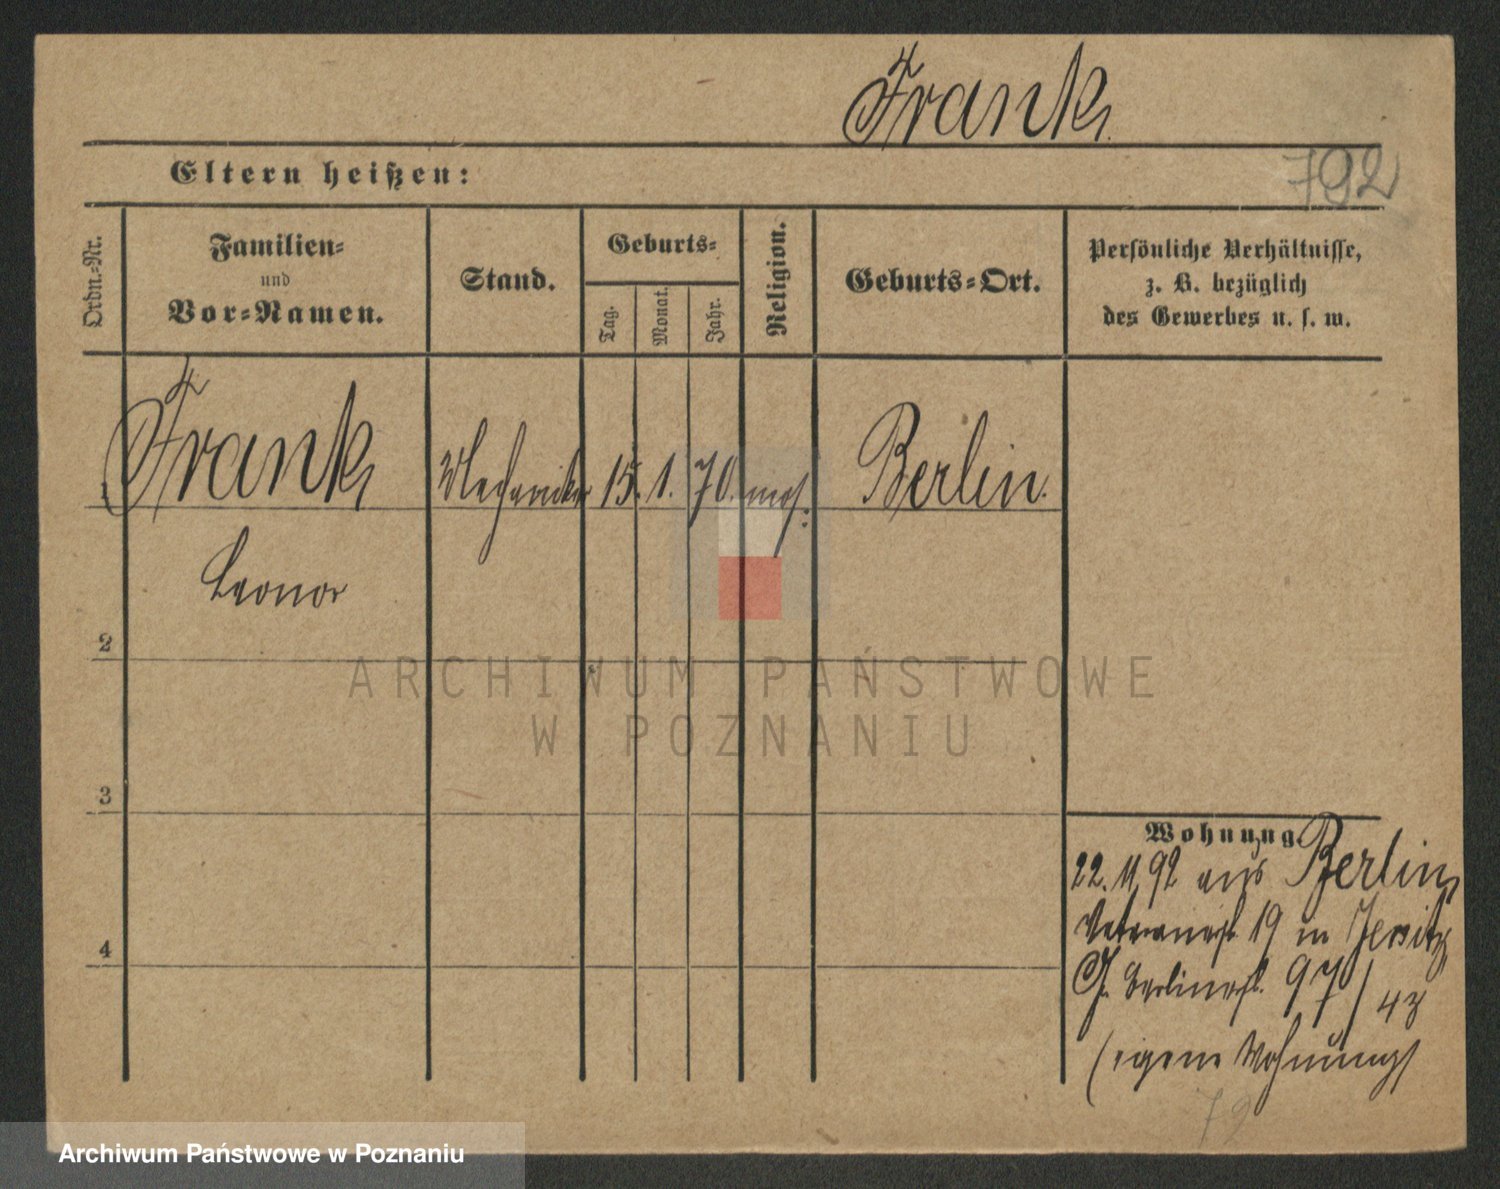 Frank
792
Eltern heißen:
Ordn.-Nr.
Familien-
und
Vor-Namen.
Stand.
Geburts-
Tag.
Monat.
Jahr.
Religion.
Geburts-Ort.
Persönliche Verhältnisse,
z. B. bezüglich
des Gewerbes u. s. w.
1 Frank Mechaniker 15. 1. 70. mos. Berlin.
Leonor
2
3
4
Wohnung
22. 11 92 aus Berlin,
19 in Jersitz
J. Berlinerst. 97/43
(eigene Wohnung)
72
ARCHIWUM PAŃSTWOWE
W POZNANIU
Archiwum Państwowe w Poznaniu